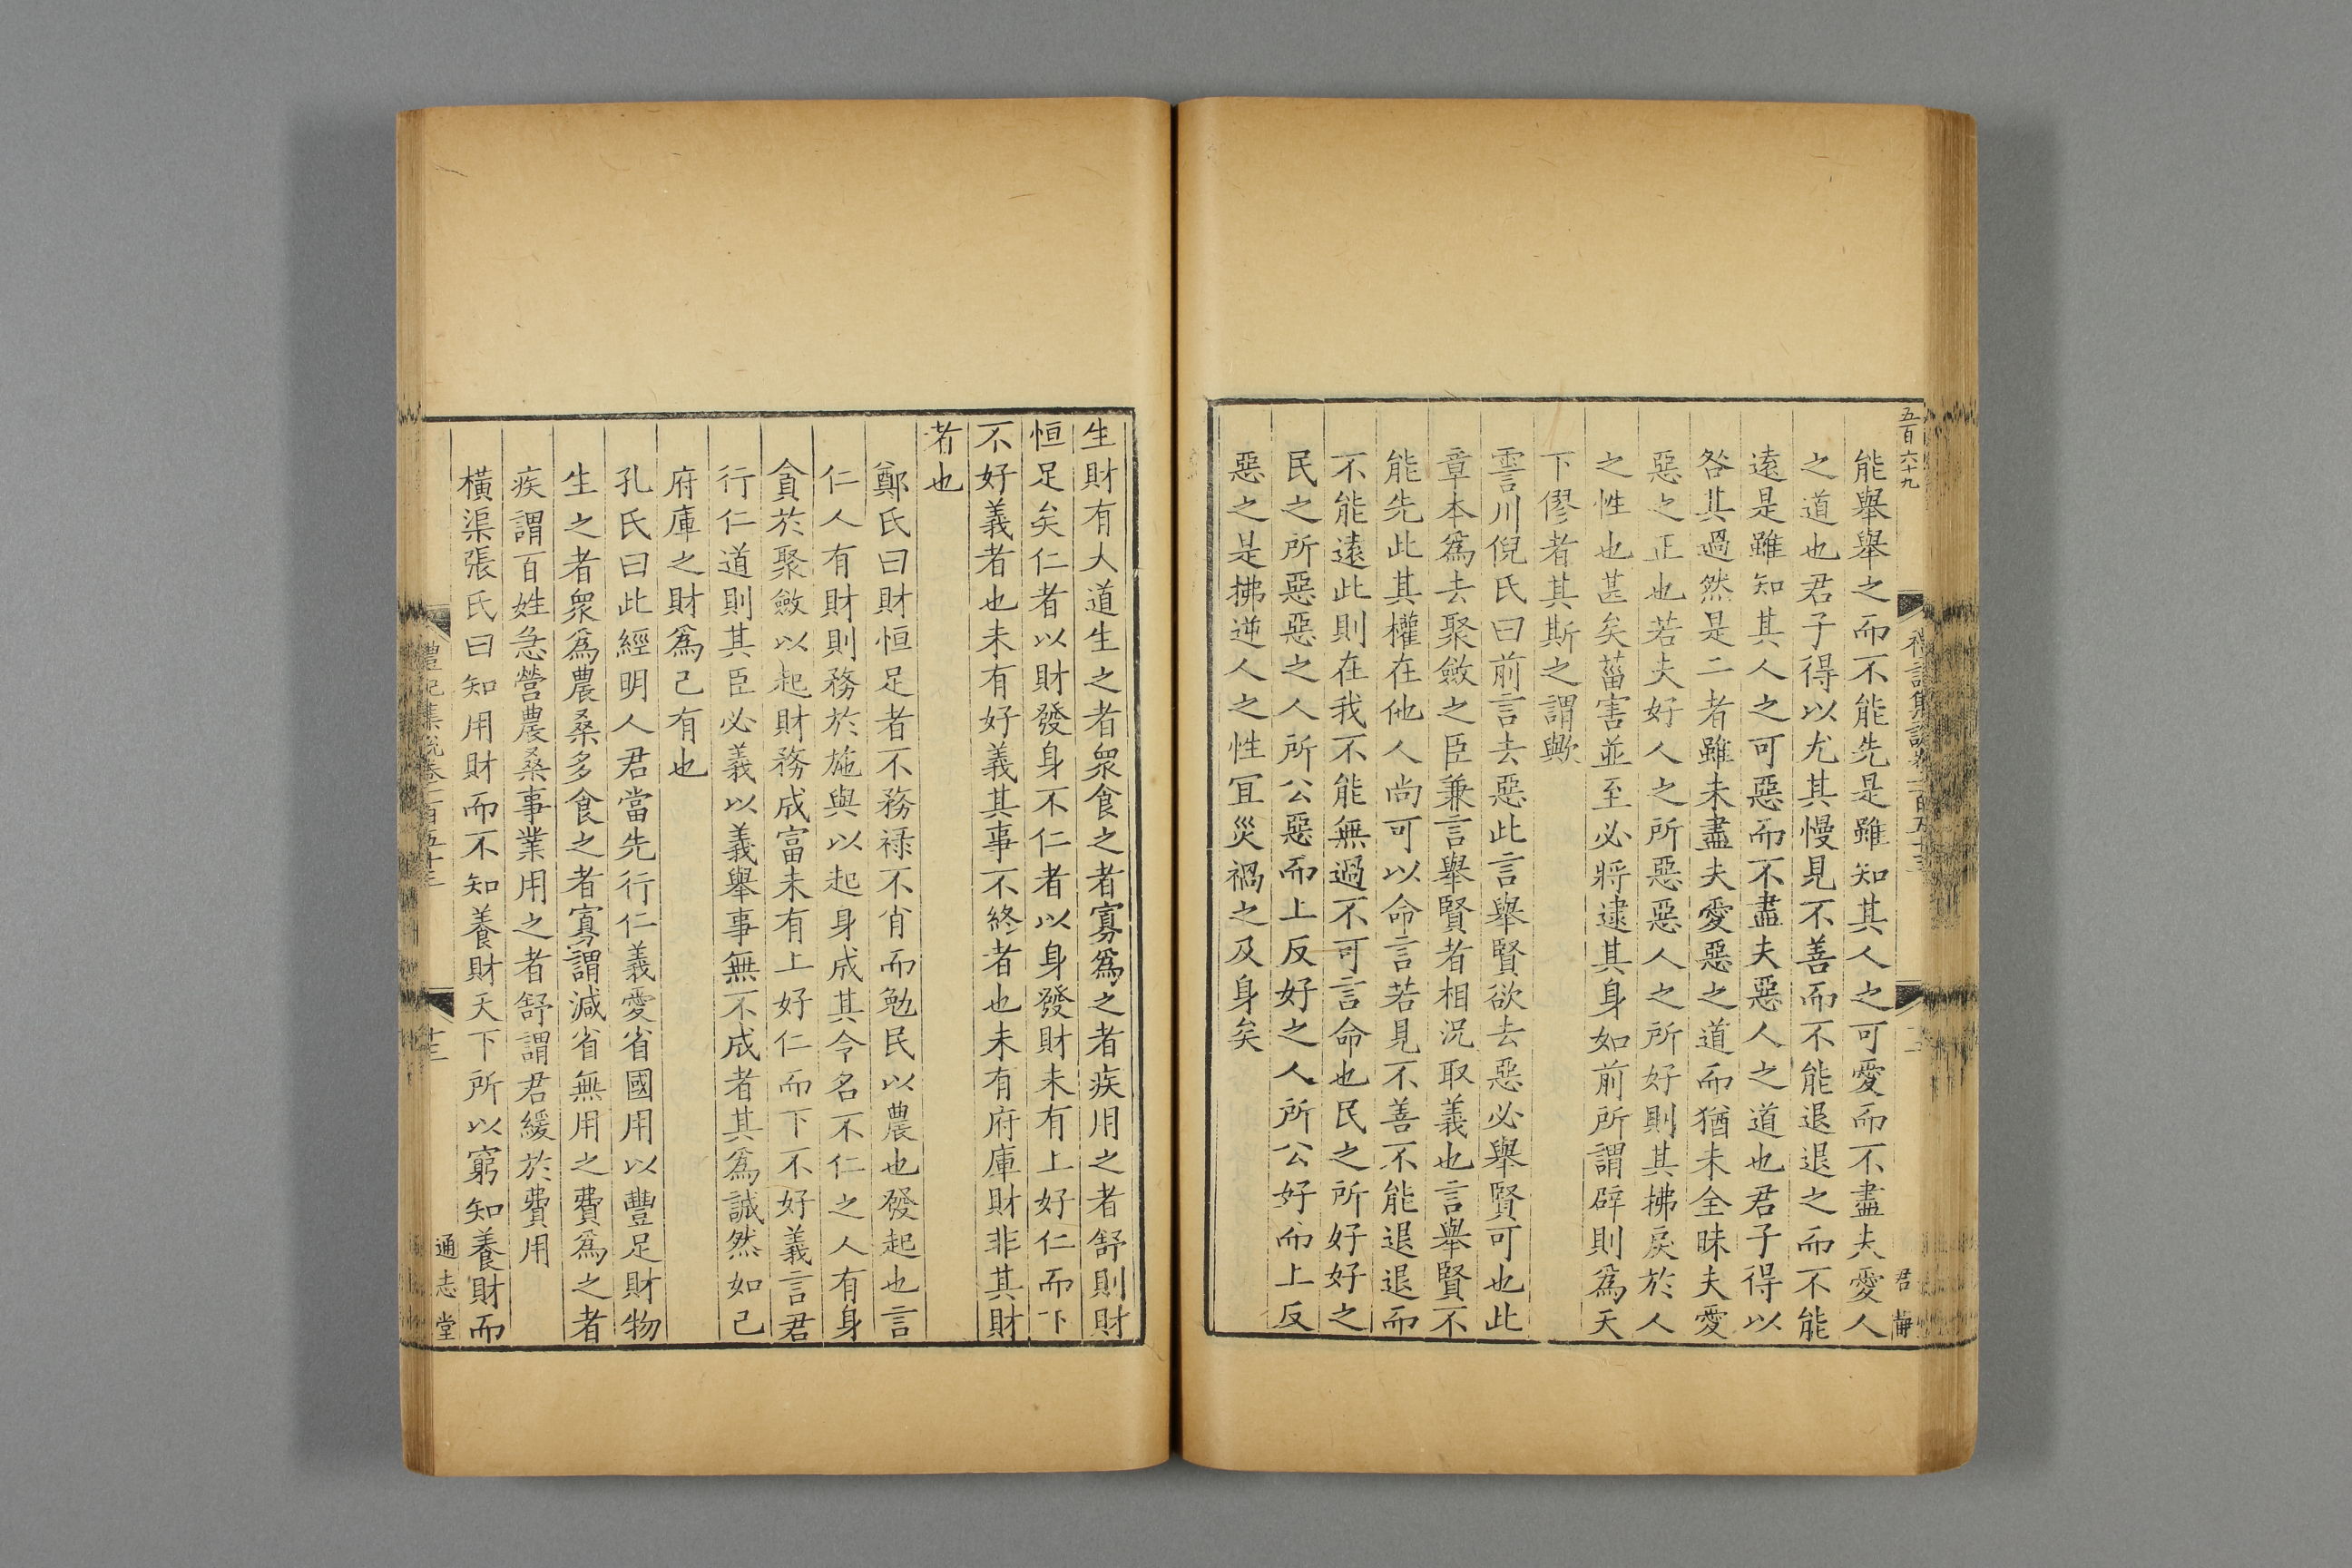 五百六十九
君靜
能舉舉之而不能先是雖知其人之可愛而不盡夫愛人
之道也君子得以尤其慢見不善而不能退退之而不能
遠是雖知其人之可惡而不盡夫惡人之道也君子得以
咎其過然是二者雖未盡夫愛惡之道而猶未全昧夫愛
惡之正也若夫好人之所惡惡人之所好則其拂戾於人
之性也甚矣菑害並至必將逮其身如前所謂辟則爲天
下僇者其斯之謂歟
霅川倪氏曰前言去惡此言舉賢欲去惡必舉賢可也此
章本爲去聚斂之臣兼言舉賢者相況取義也言舉賢不
能先此其權在他人尚可以命言若見不善不能退退而
不能遠此則在我不能無過不可言命也民之所好好之
民之所惡惡之人所公惡而上反好之人所公好而上反
惡之是拂逆人之性宜災禍之及身矣
生財有大道生之者衆食之者寡爲之者疾用之者舒則財
恒足矣仁者以財發身不仁者以身發財未有上好仁而下
不好義者也未有好義其事不終者也未有府庫財非其財
者也
鄭氏曰財恒足者不務祿不肖而勉民以農也發起也言
仁人有財則務於施與以起身成其令名不仁之人有身
貪於聚斂以起財務成富未有上好仁而下不好義言君
行仁道則其臣必義以義舉事無不成者其爲誠然如己
府庫之財爲己有也
孔氏曰此經明人君當先行仁義愛省國用以豐足財物
生之者衆爲農桑多食之者寡謂減省無用之費爲之者
疾謂百姓急營農桑事業用之者舒謂君緩於費用
橫渠張氏曰知用財而不知養財天下所以窮知養財而
禮記集說卷一百五十三
十三
通志堂